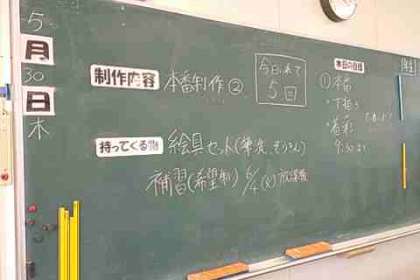 5
月
30
日
木
制作内容 本番制作②
今日入れて
5回
持ってくる物 絵具セット(筆洗、ぞうきん)
補習(希望制) 6/4(火)放課後
本日の目標
①本番
・下描き
・着彩